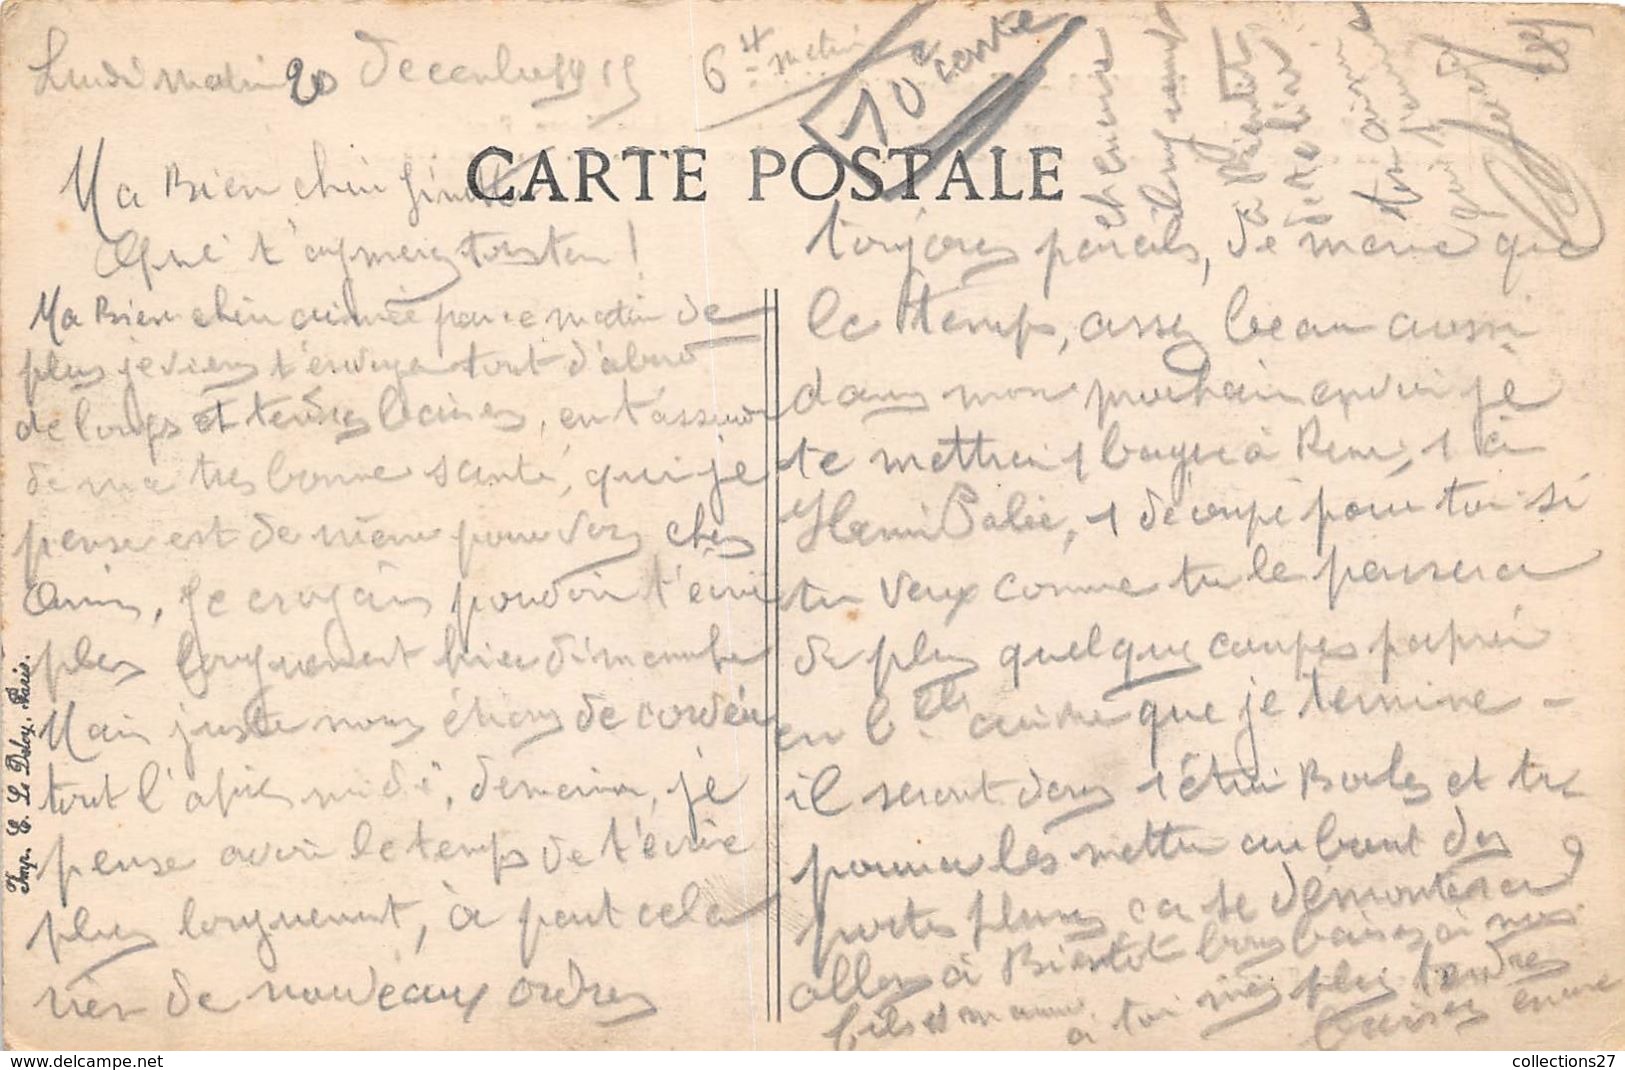 Lundi matin 20 Decembre 1915
10e carte
CARTE POSTALE
Ma Bien chère Ginette
Que t'aymerez tou ton !
Ma Bien chère aimée par ce matin de
plus je viens t'envoyer tout d'abord
de longs et tendres baisers, en t'assurant
de ma tres bonne santé, qui je
pense est de même pour vous chers
Amis, Je croyais pouvoir t'écrire
plus longuement hier dimanche
Mais juste nous étions de corvée
tout l'après midi, demain, je
pense avoir le temps de t'écrire
plus longuement, à part cela
rien de nouveaux ordres
toujours pareils, de meme que
le temps, assez beau aussi
dans mon prochain envoi je
te mettrai 1 bague à René, 1 à
Henri, 1 découpé pour toi si
tu veux comme tu le pensera
de plus quelque coupes papier
en que je termine -
il seront dans 1 étui Boules et tu
pourra les mettre au bout des
portes plumes ça se démontera
allons à Bientôt bons baisers à nos
fils et maman à toi mes plus tendres
baisers encore
et encore
longuement
à Bientôt
de te lire
ton aimé
qui
Imp. E. Le Deley, Paris.
collections27